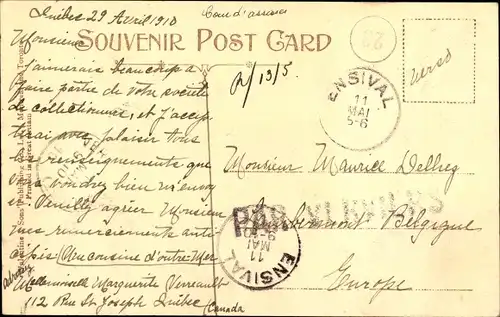 Québec 29 Avril 1910
SOUVENIR POST CARD
Monsieur
J'aimerais beaucoup a
faire partie de votre société
de collectionneur, et j'accep
terai avec plaisir tous
les renseignements que
vous voudrez bien m'en
voyer. Veuillez agréer Monsieur
mes remerciements anti-
cipés (Une cousine d'outre Mer
Mademoiselle Marguerite Verreault
112 Rue St Joseph Québec
Canada
R/13/5
verso
ENSIVAL
11
MAI
5-6
Monsieur Maurice Delheg
Belgique
Europe
ENSIVAL
11
MAI